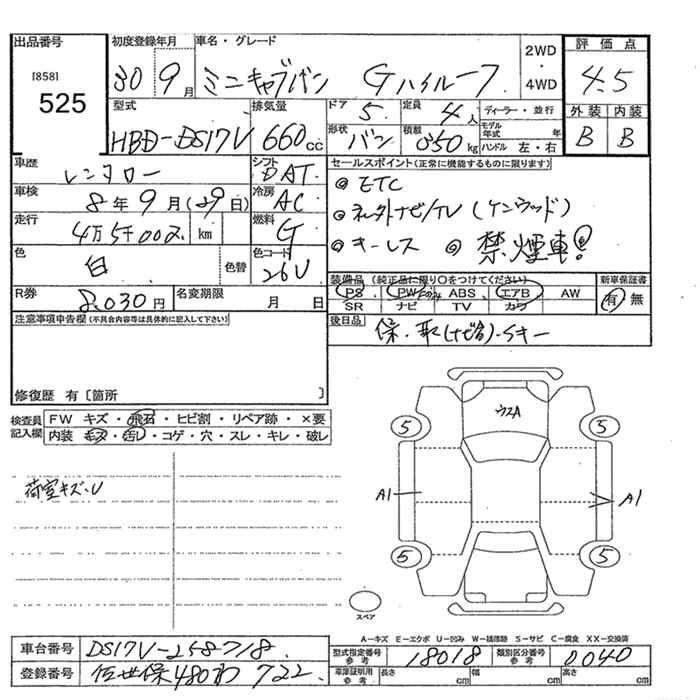 出品番号 初度登録年月 車名・グレード 2WD・4WD 評価点
[858] 525 30 9月 ミニキャブバン Gハイルーフ 4.5
型式 排気量 ドア 5 定員 4人 ディーラー・並行 外装 内装
HBD-DS17V 660cc 形状 バン 積載 350kg モデル年式 年 ハンドル 左・右 B B
車歴 レンタロー シフト DAT セールスポイント(正常に機能するものに限ります)
車検 8年9月(29日) 冷房 AC ◎ETC
走行 4万5千002 km 燃料 G ・ネ外ナビ/TV(ケンウッド)
色 白 色替 色コード 26U ◎キーレス ◎禁煙車!
R券 8,030円 名変期限 月 日 装備品 (純正品に限り○をつけてください) 新車保証書
PS PW ABS エアB AW 有・無
SR ナビ TV カワ
注意事項申告欄(不具合内容等は具体的に記入して下さい) 後日品 保・取(ナビ含)・Sキー
修復歴 有〔箇所 〕
検査員記入欄 FW キズ・飛石・ヒビ割・リペア跡・×要
内装 キズ・汚レ・コゲ・穴・スレ・キレ・破レ
ウスA
5 5
荷室キズ・U
A1 A1
5 5
スペア
A-キズ E-エクボ U-凹み W-補修跡 S-サビ C-腐食 XX-交換済
車台番号 DS17V-258718 型式指定番号 参考 18018 類別区分番号 参考 0040
登録番号 佐世保480わ 722 車庫証明用 参考 長さ cm 幅 cm 高さ cm